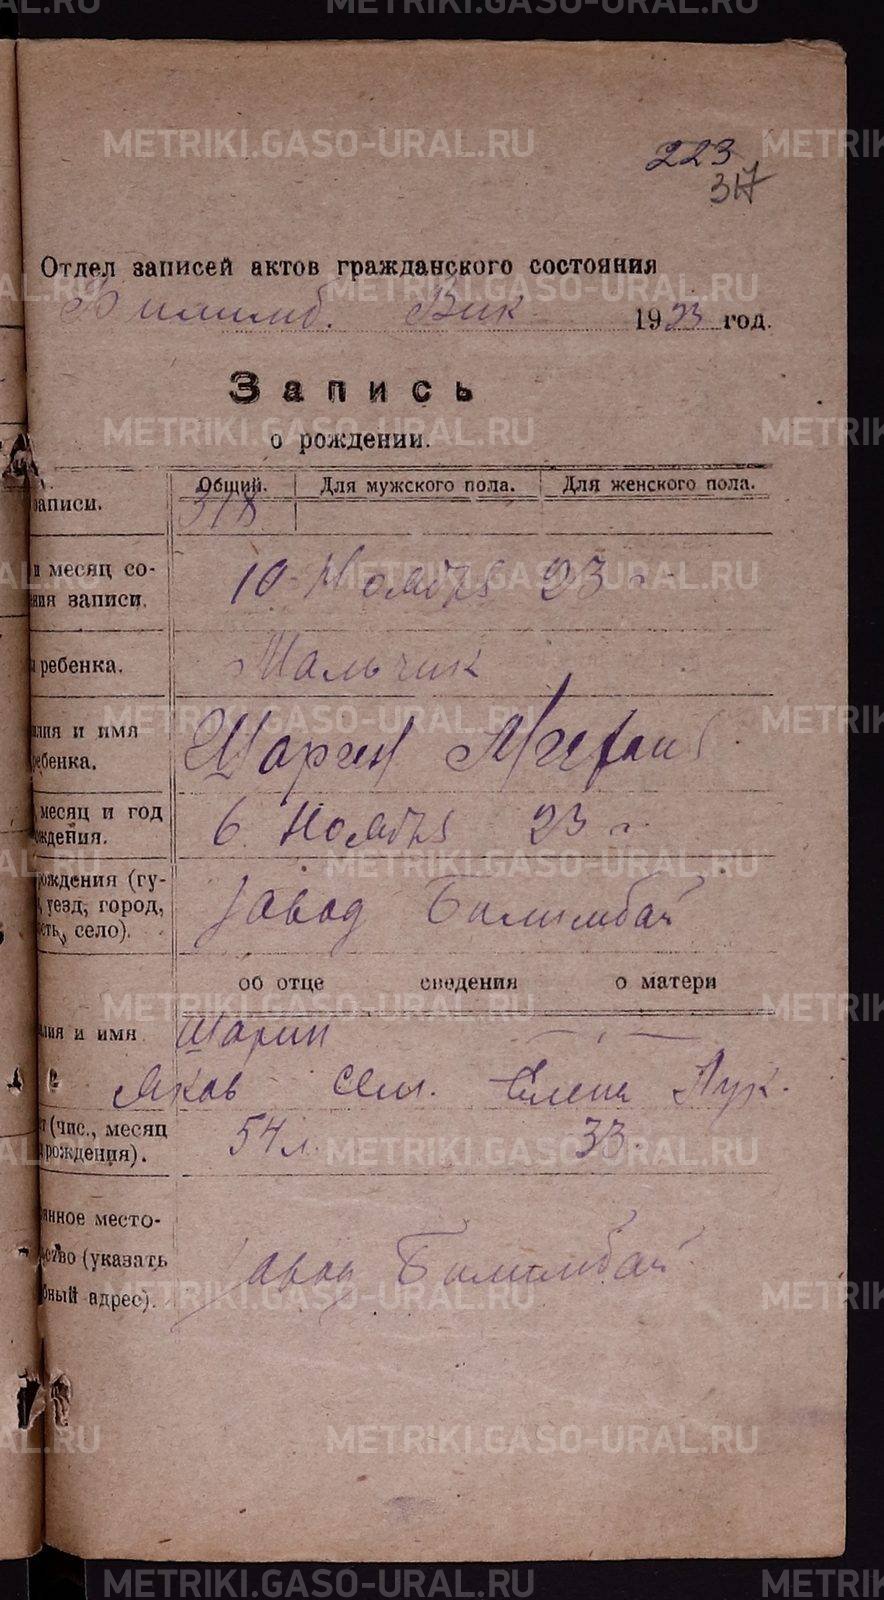 METRIKI.GASO-URAL.RU
223
317
Отдел записей актов гражданского состояния
Билимб. Вик 1923 год.
Запись
о рождении.
Общий. Для мужского пола. Для женского пола.
записи. 318
и месяц со-
ния записи. 10 Ноября 23 г.
ребенка. Мальчик
лия и имя
ребенка. Шарин
месяц и год
ождения. 6 Ноября 23 г.
рождения (гу-
уезд, город,
ость, село). завод Билимбай
об отце сведения о матери
лия и имя Шарин
Яков Сем. Елена Лук.
(чис., месяц
рождения). 54 л. 33
янное место-
ство (указать
бный адрес). завод Билимбай